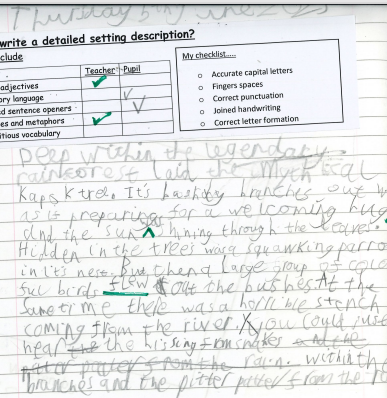 Thursday
write a detailed setting description?
clude
Teacher Pupil
adjectives
ory language
d sentence openers
es and metaphors
itious vocabulary
My checklist.....
Accurate capital letters
Fingers spaces
Correct punctuation
Joined handwriting
Correct letter formation
Deep within the legendary
rainforest laid the mythical
Kapok tree. It's branches out w
as if preparing for a welcoming hug
and the sun shining through the leaves.
Hidden in the trees was a squawking parro
in it's nest. But then a large group of colo
ful birds flew out the bushes At the
same time there was a horrible stench
coming from the river. you could just
hear the the hissing from snakes and the
pitter patter from the rain. within th
branches and the pitter patter from the